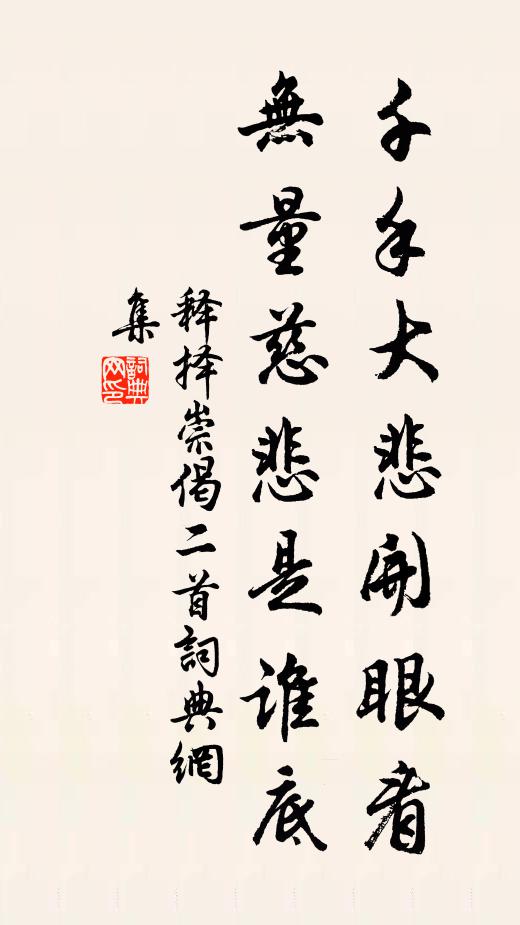 千手大悲開眼看
無量慈悲是誰底
释择崇偈二首詞典網
集
詞典
网印